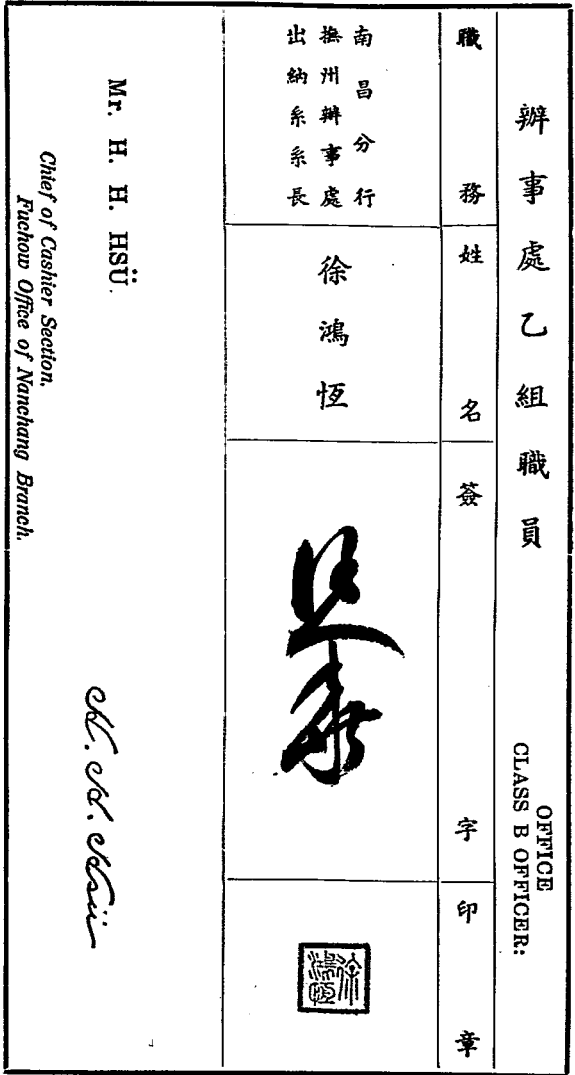 辦事處乙組職員
OFFICE
CLASS B OFFICER:
職務
姓名
簽字
印章
南昌分行
撫州辦事處
出納系系長
徐鴻恆
徐鴻恆
Mr. H. H. HSÜ.
H. H. Hsü
Chief of Cashier Section.
Fuchow Office of Nanchang Branch.